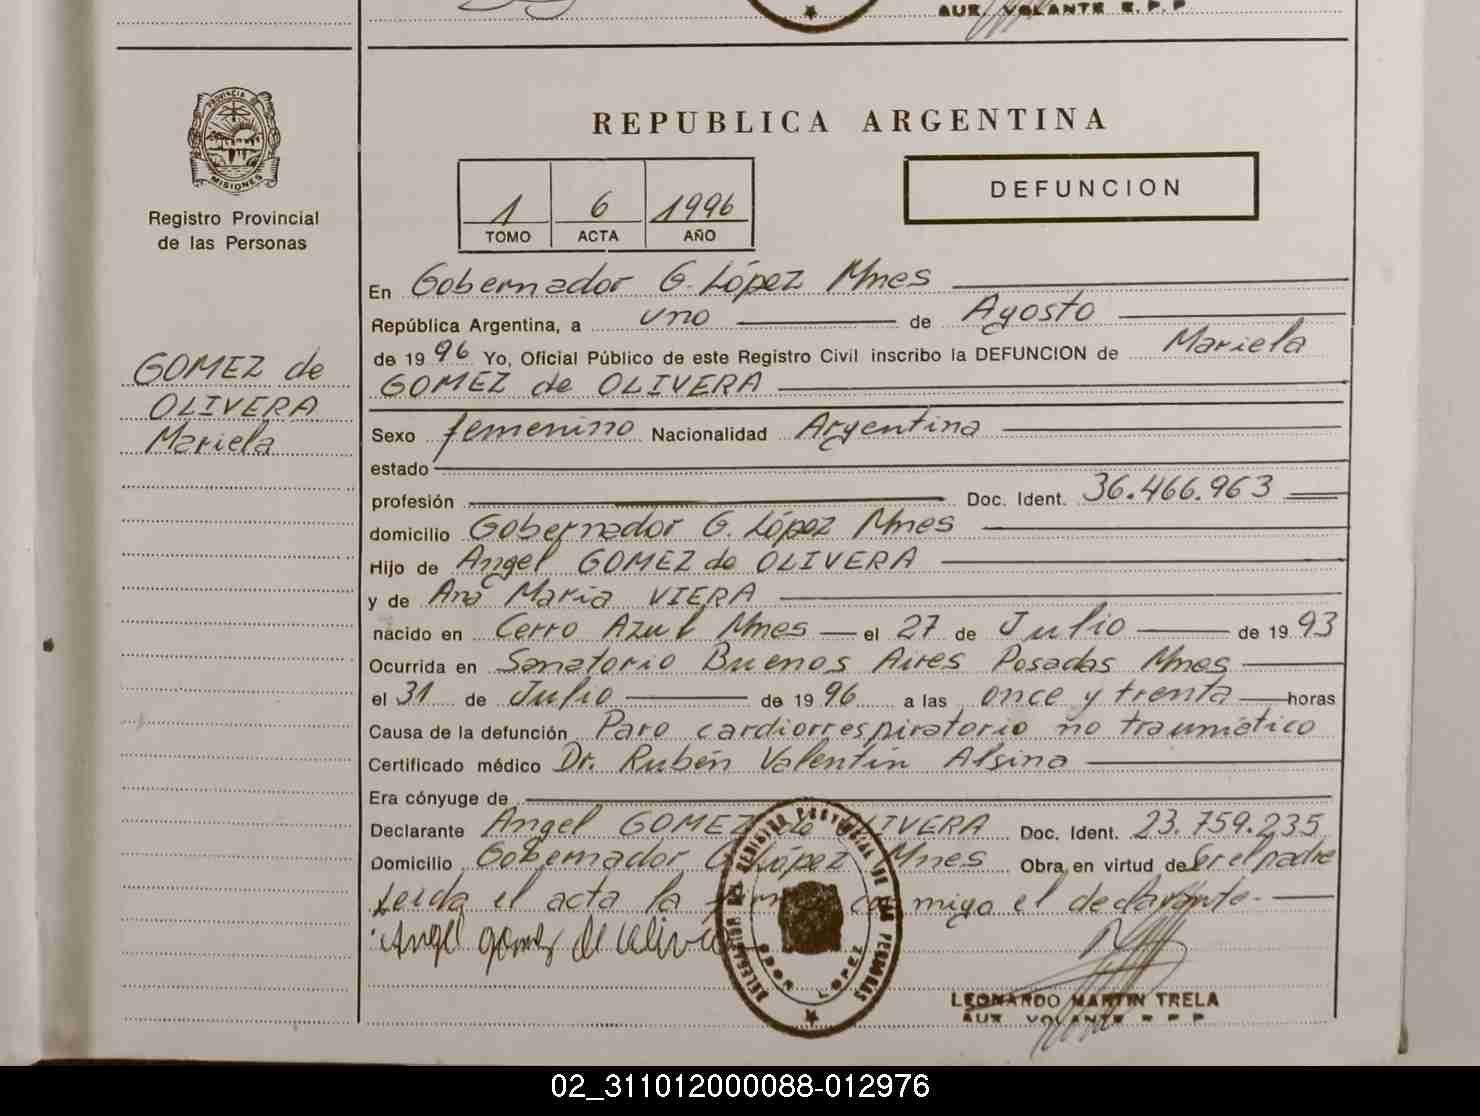 AUX. VOLANTE R.P.P.
PROVINCIA DE
MISIONES
Registro Provincial
de las Personas
REPUBLICA ARGENTINA
1 6 1996
TOMO ACTA AÑO
DEFUNCION
En Gobernador G. López Mnes
República Argentina, a uno de Agosto
de 1996 Yo, Oficial Público de este Registro Civil inscribo la DEFUNCION de Mariela
GOMEZ de OLIVERA
GOMEZ de
OLIVERA
Mariela
Sexo femenino Nacionalidad Argentina
estado
profesión Doc. Ident. 36.466.963
domicilio Gobernador G. López Mnes
Hijo de Angel GOMEZ de OLIVERA
y de Ana María VIERA
nacido en Cerro Azul Mnes el 27 de Julio de 1993
Ocurrida en Sanatorio Buenos Aires Posadas Mnes
el 31 de Julio de 1996 a las once y trenta horas
Causa de la defunción Paro cardiorrespiratorio no traumático
Certificado médico Dr. Rubén Valentín Alsina
Era cónyuge de
Declarante Angel GOMEZ de OLIVERA Doc. Ident. 23.759.235
Domicilio Gobernador G. López Mnes Obra en virtud de Ser el padre
Leída el acta la firma conmigo el declarante.
Angel gomez de olivera
DELEGACION DEL REGISTRO PROVINCIAL DE LAS PERSONAS
GDOR LOPEZ
LEONARDO MARTIN TRELA
AUX. VOLANTE R.P.P.
02_311012000088-012976